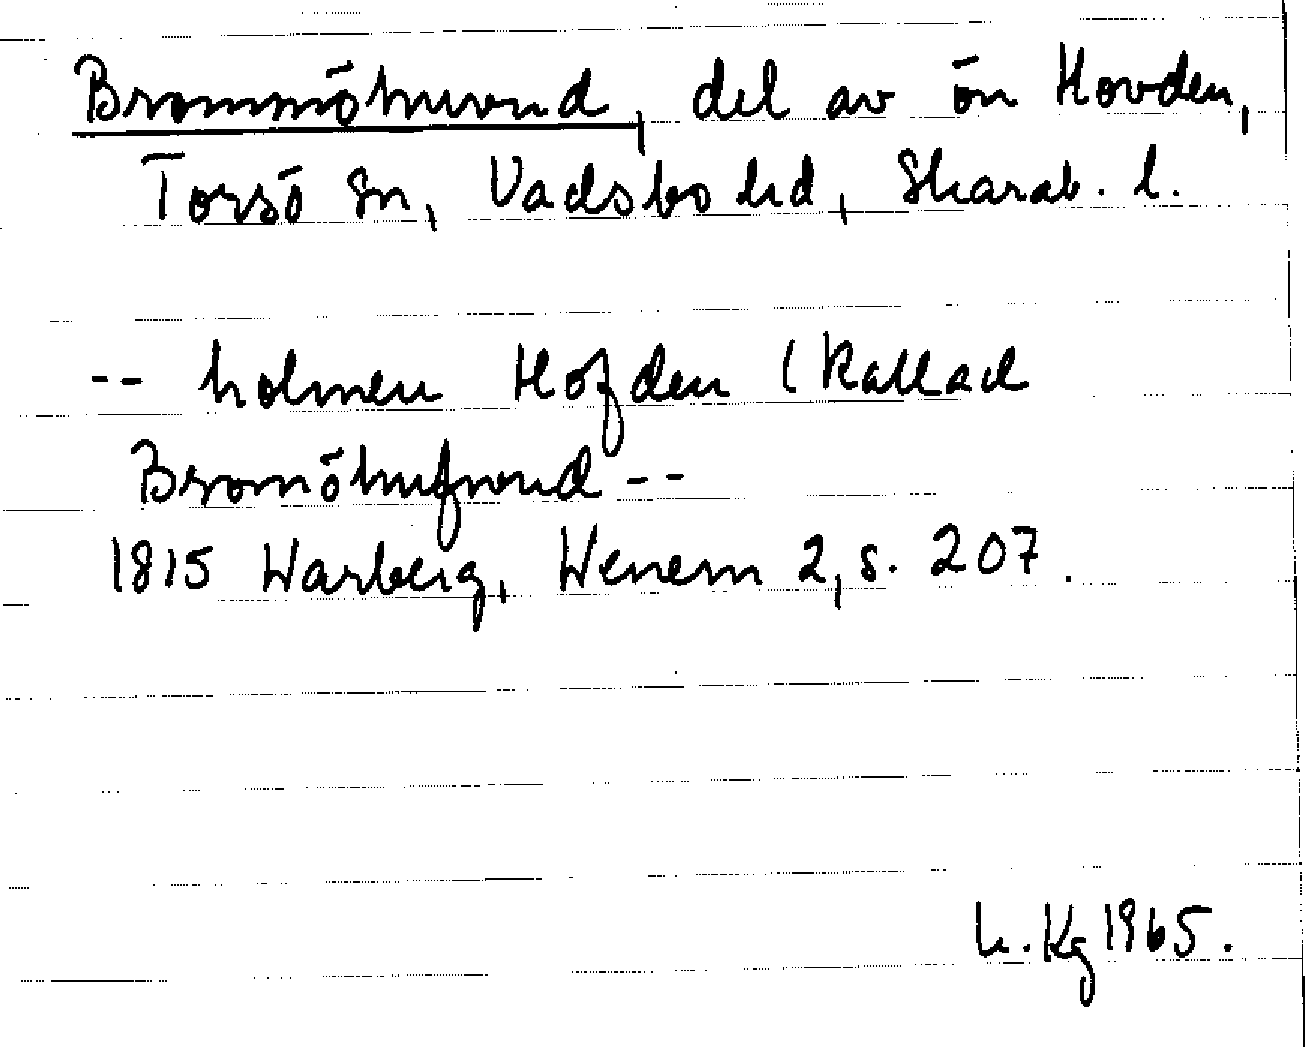 Brommöhuvud, del av ön Hovden,
Torsö sn, Vadsbo hd, Skarab. l.
-- holmen Hofden (kallad
Bromöhufvud --
1815 Warberg, Wenern 2, s. 207.
L. Kg 1965.